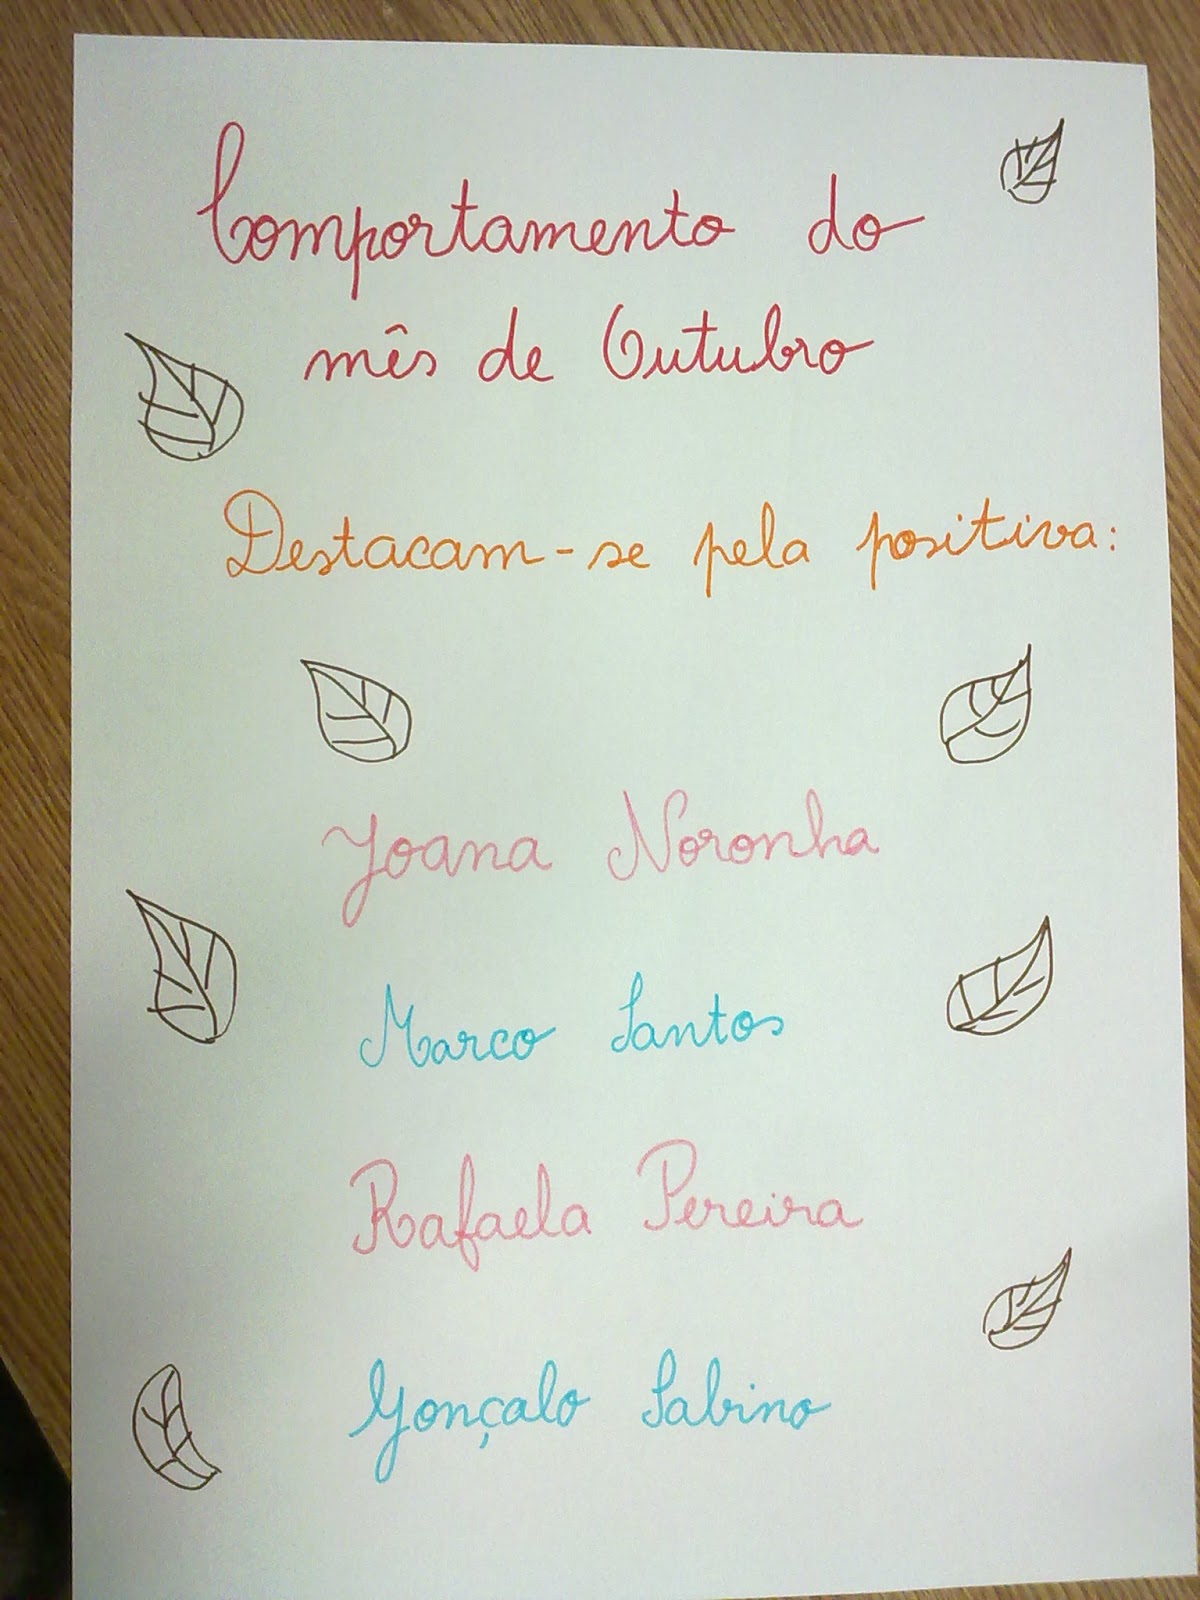 Comportamento do
mês de Outubro
Destacam-se pela positiva:
Joana Noronha
Marco Santos
Rafaela Pereira
Gonçalo Sabino